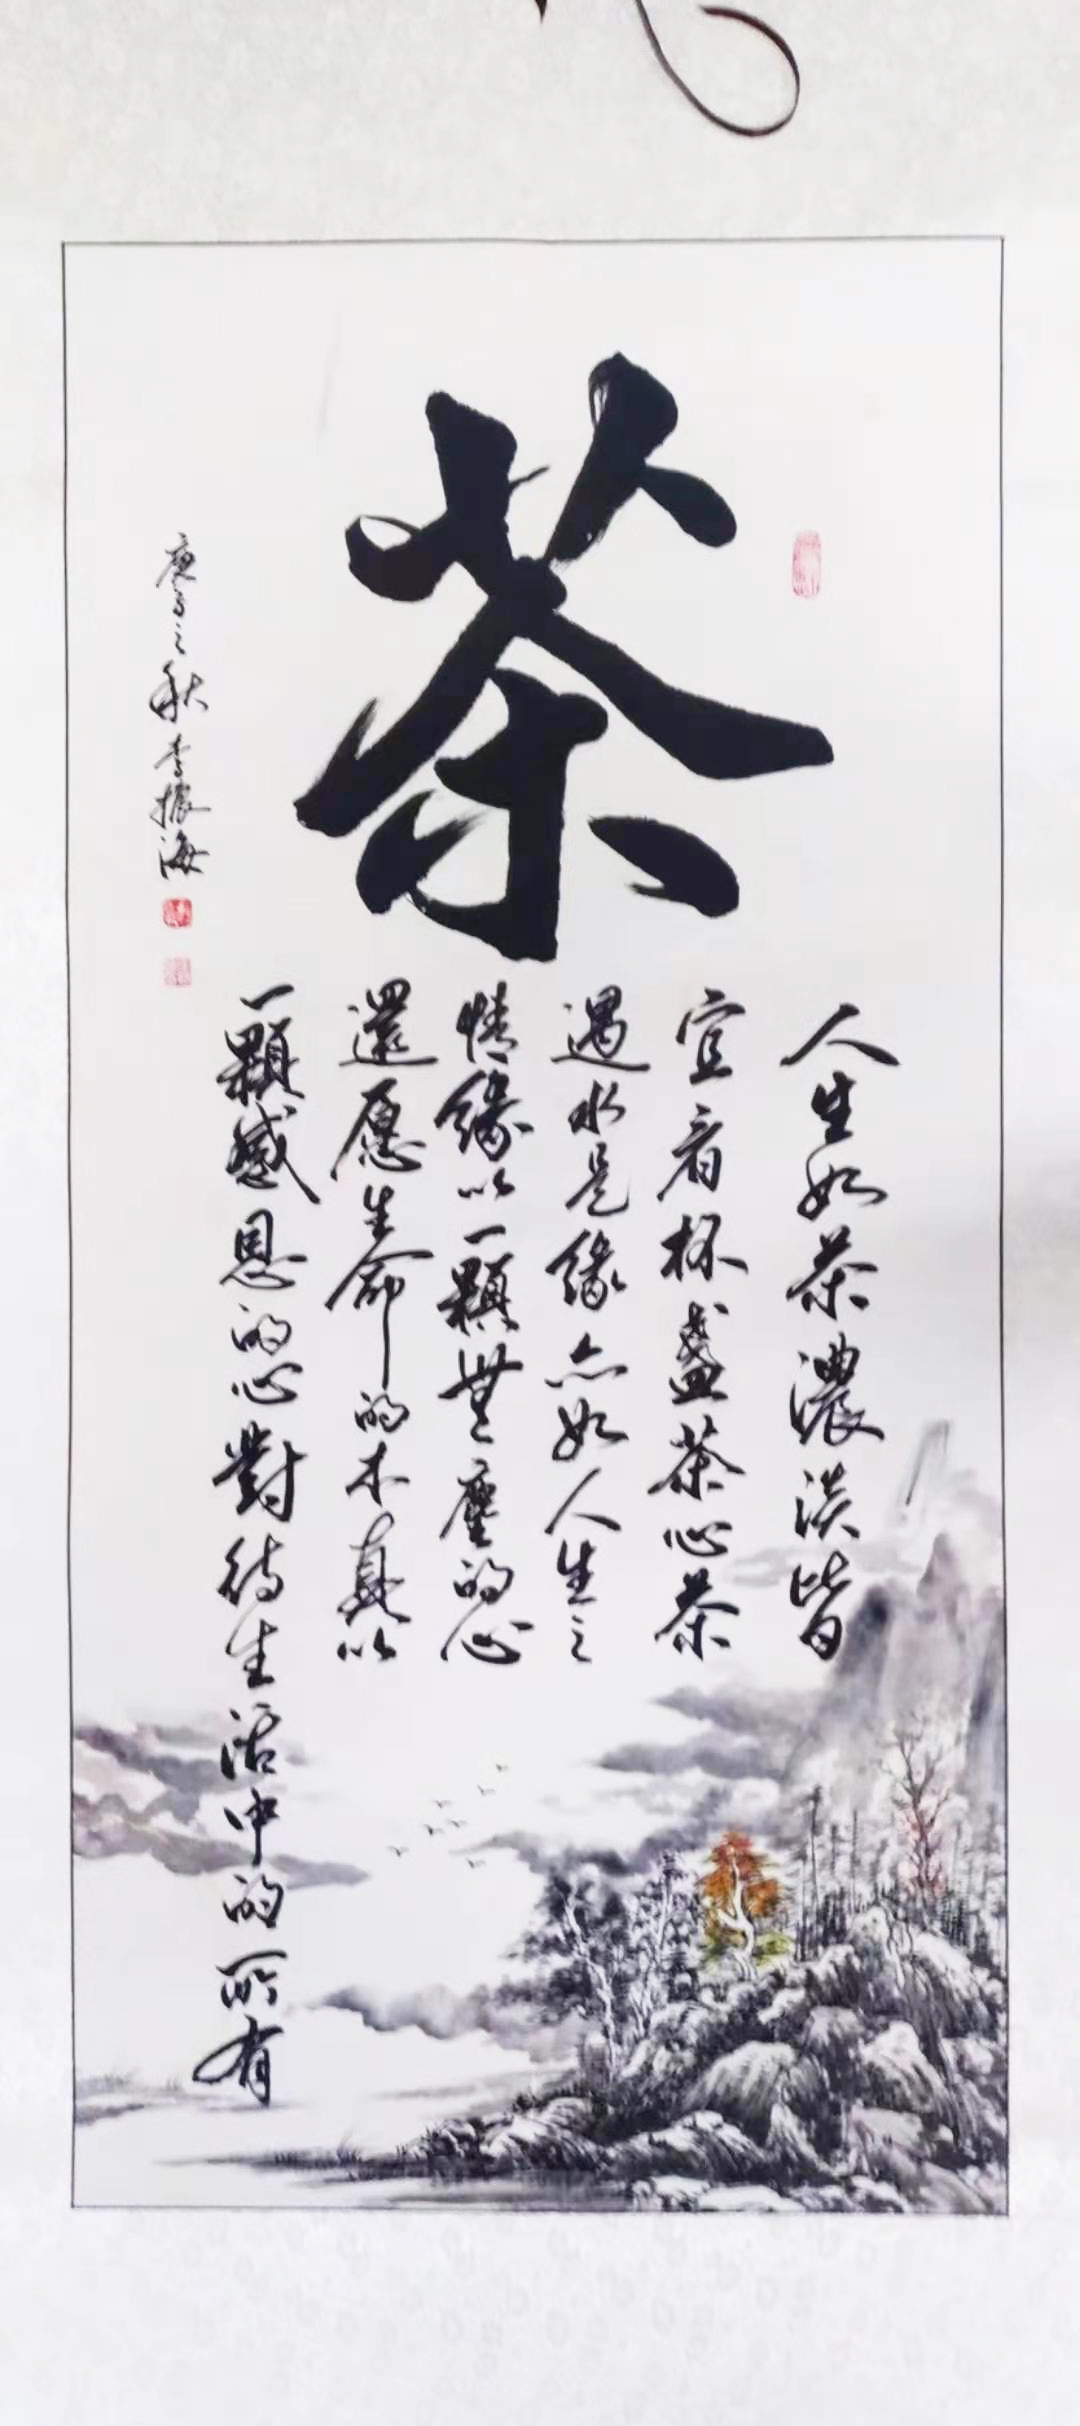 茶
人生如茶濃淡皆
宜看杯盞茶心茶
遇水是緣亦如人生之
情緣以一顆無塵的心
還愿生命的本真以
一顆感恩的心對待生活中的所有
庚子之秋李振海